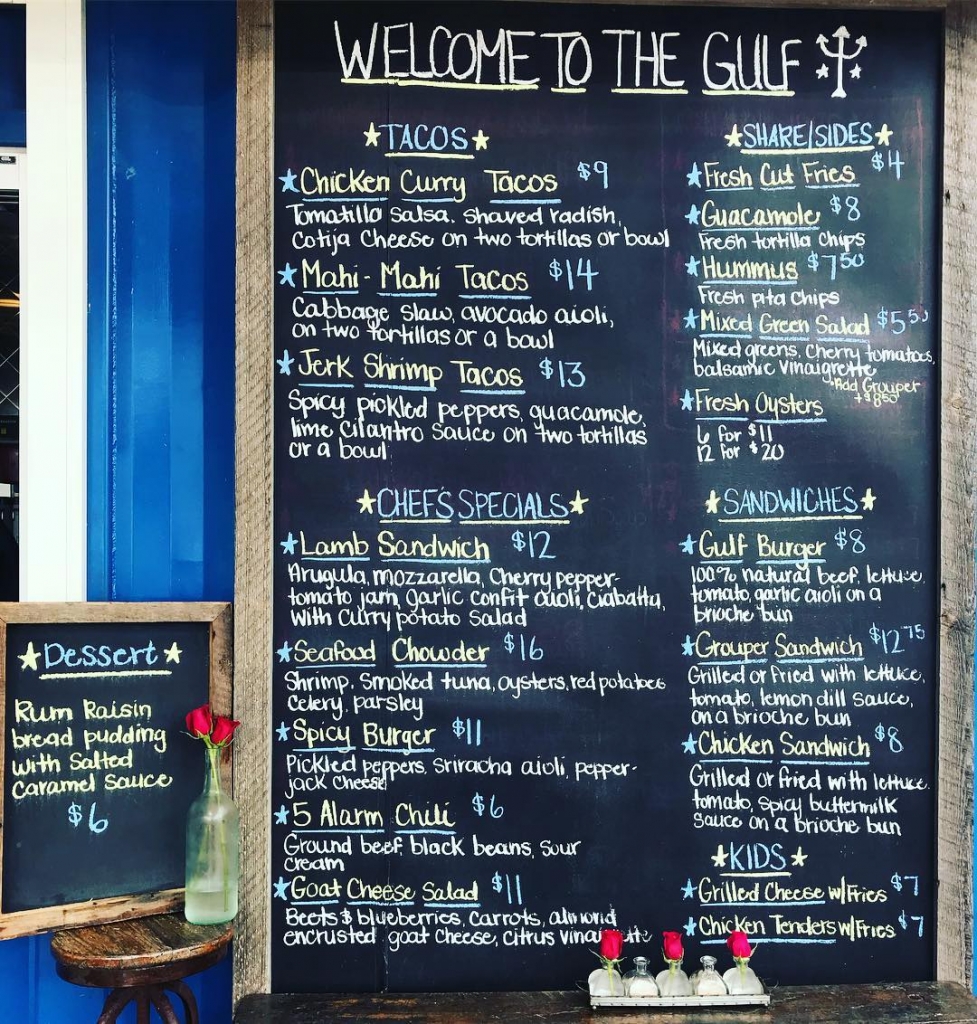 WELCOME TO THE GULF
TACOS
Chicken Curry Tacos $9
Tomatillo salsa. shaved radish,
Cotija Cheese on two tortillas or bowl
Mahi-Mahi Tacos $14
Cabbage slaw, avocado aioli,
on two tortillas or a bowl
Jerk Shrimp Tacos $13
Spicy pickled peppers, guacamole,
lime cilantro sauce on two tortillas
or a bowl
CHEF'S SPECIALS
Lamb Sandwich $12
Arugula, mozzarella, Cherry pepper-
tomato jam, garlic confit aioli, ciabatta,
with curry potato salad
Seafood Chowder $16
Shrimp, smoked tuna, oysters, red potatoes
celery, parsley
Spicy Burger $11
Pickled peppers, sriracha aioli, pepper-
jack cheese
5 Alarm Chili $6
Ground beef, black beans, sour
cream
Goat Cheese Salad $11
Beets & blueberries, carrots, almond
encrusted goat cheese, citrus
SHARE/SIDES
Fresh Cut Fries $4
Guacamole $8
Fresh tortilla chips
Hummus $7.50
Fresh pita chips
Mixed Green Salad $5.50
Mixed greens, cherry tomatoes,
balsamic vinaigrette
*Add Grouper
+$8.50
Fresh Oysters
6 for $11
12 for $20
SANDWICHES
Gulf Burger $8
100% natural beef, lettuce,
tomato, garlic aioli on a
brioche bun
Grouper Sandwich $12.75
Grilled or fried with lettuce,
tomato, lemon dill sauce,
on a brioche bun
Chicken Sandwich $8
Grilled or fried with lettuce,
tomato, spicy buttermilk
sauce on a brioche bun
KIDS
Grilled Cheese w/Fries $7
Chicken Tenders w/Fries $7
Dessert
Rum Raisin
bread pudding
with Salted
Caramel Sauce
$6